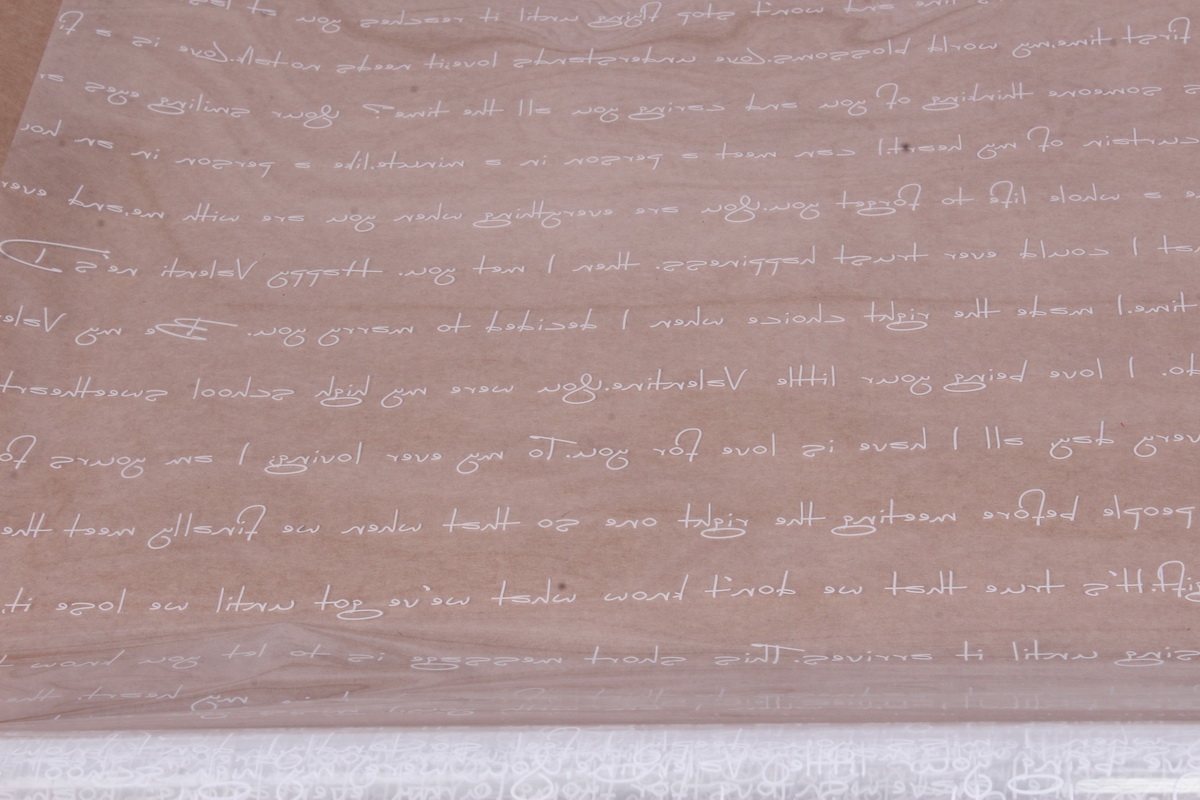 won't stop flying until it reaches you at las
first time.my world blossoms.Love understands love;it needs notalk.Love is a f
s someone thinking of you and caring you all the time? Your smiling eyes ar
curtain of my heart.I can meet a person in a minute.like a person in an hou
e a whole life to forget you.You are everything when you are with me.and ever
at I could ever trust happiness. then I met you. Happy Valenti ne's D
time.I made the right choice when I decided to marry you. Be my Vale
do. I love being your little Valentine.You were my high school sweetheart
very day all I have is love for you.To my ever loving: I am yours fo
people before meeting the right one so that when we finally meet the
gift.It's true that we don't know what we've got until we lose it.
sing until it arrives.This short message is to let you know t
my heart. th